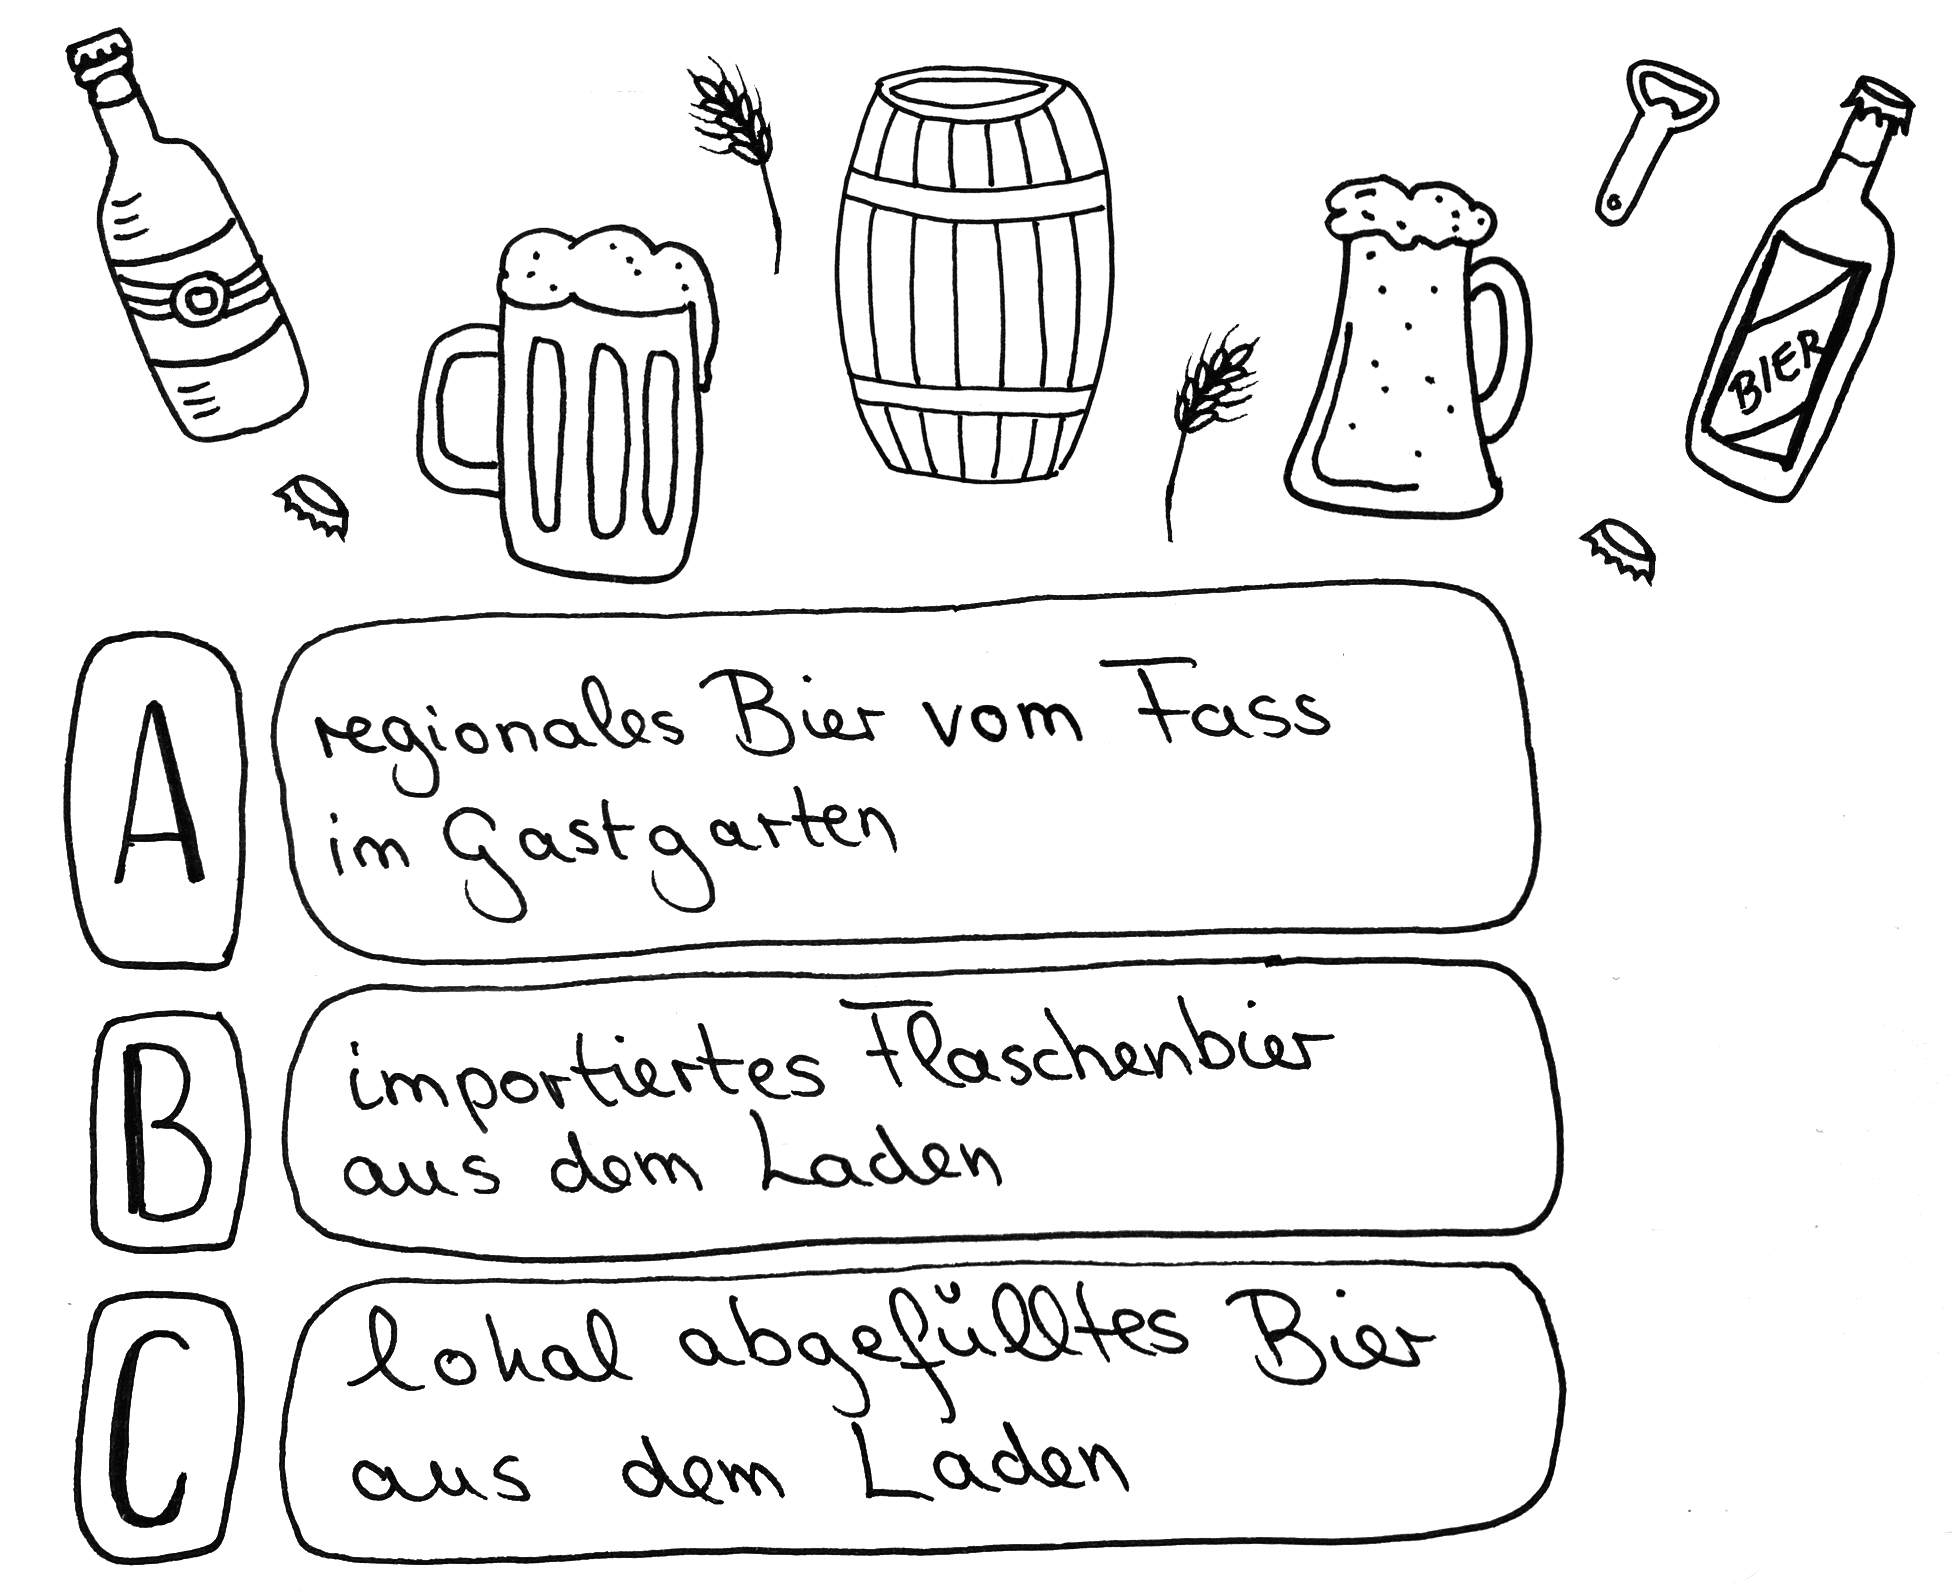 BIER
A
regionales Bier vom Fass
im Gastgarten
B
importiertes Flaschenbier
aus dem Laden
C
lokal abgefülltes Bier
aus dem Laden